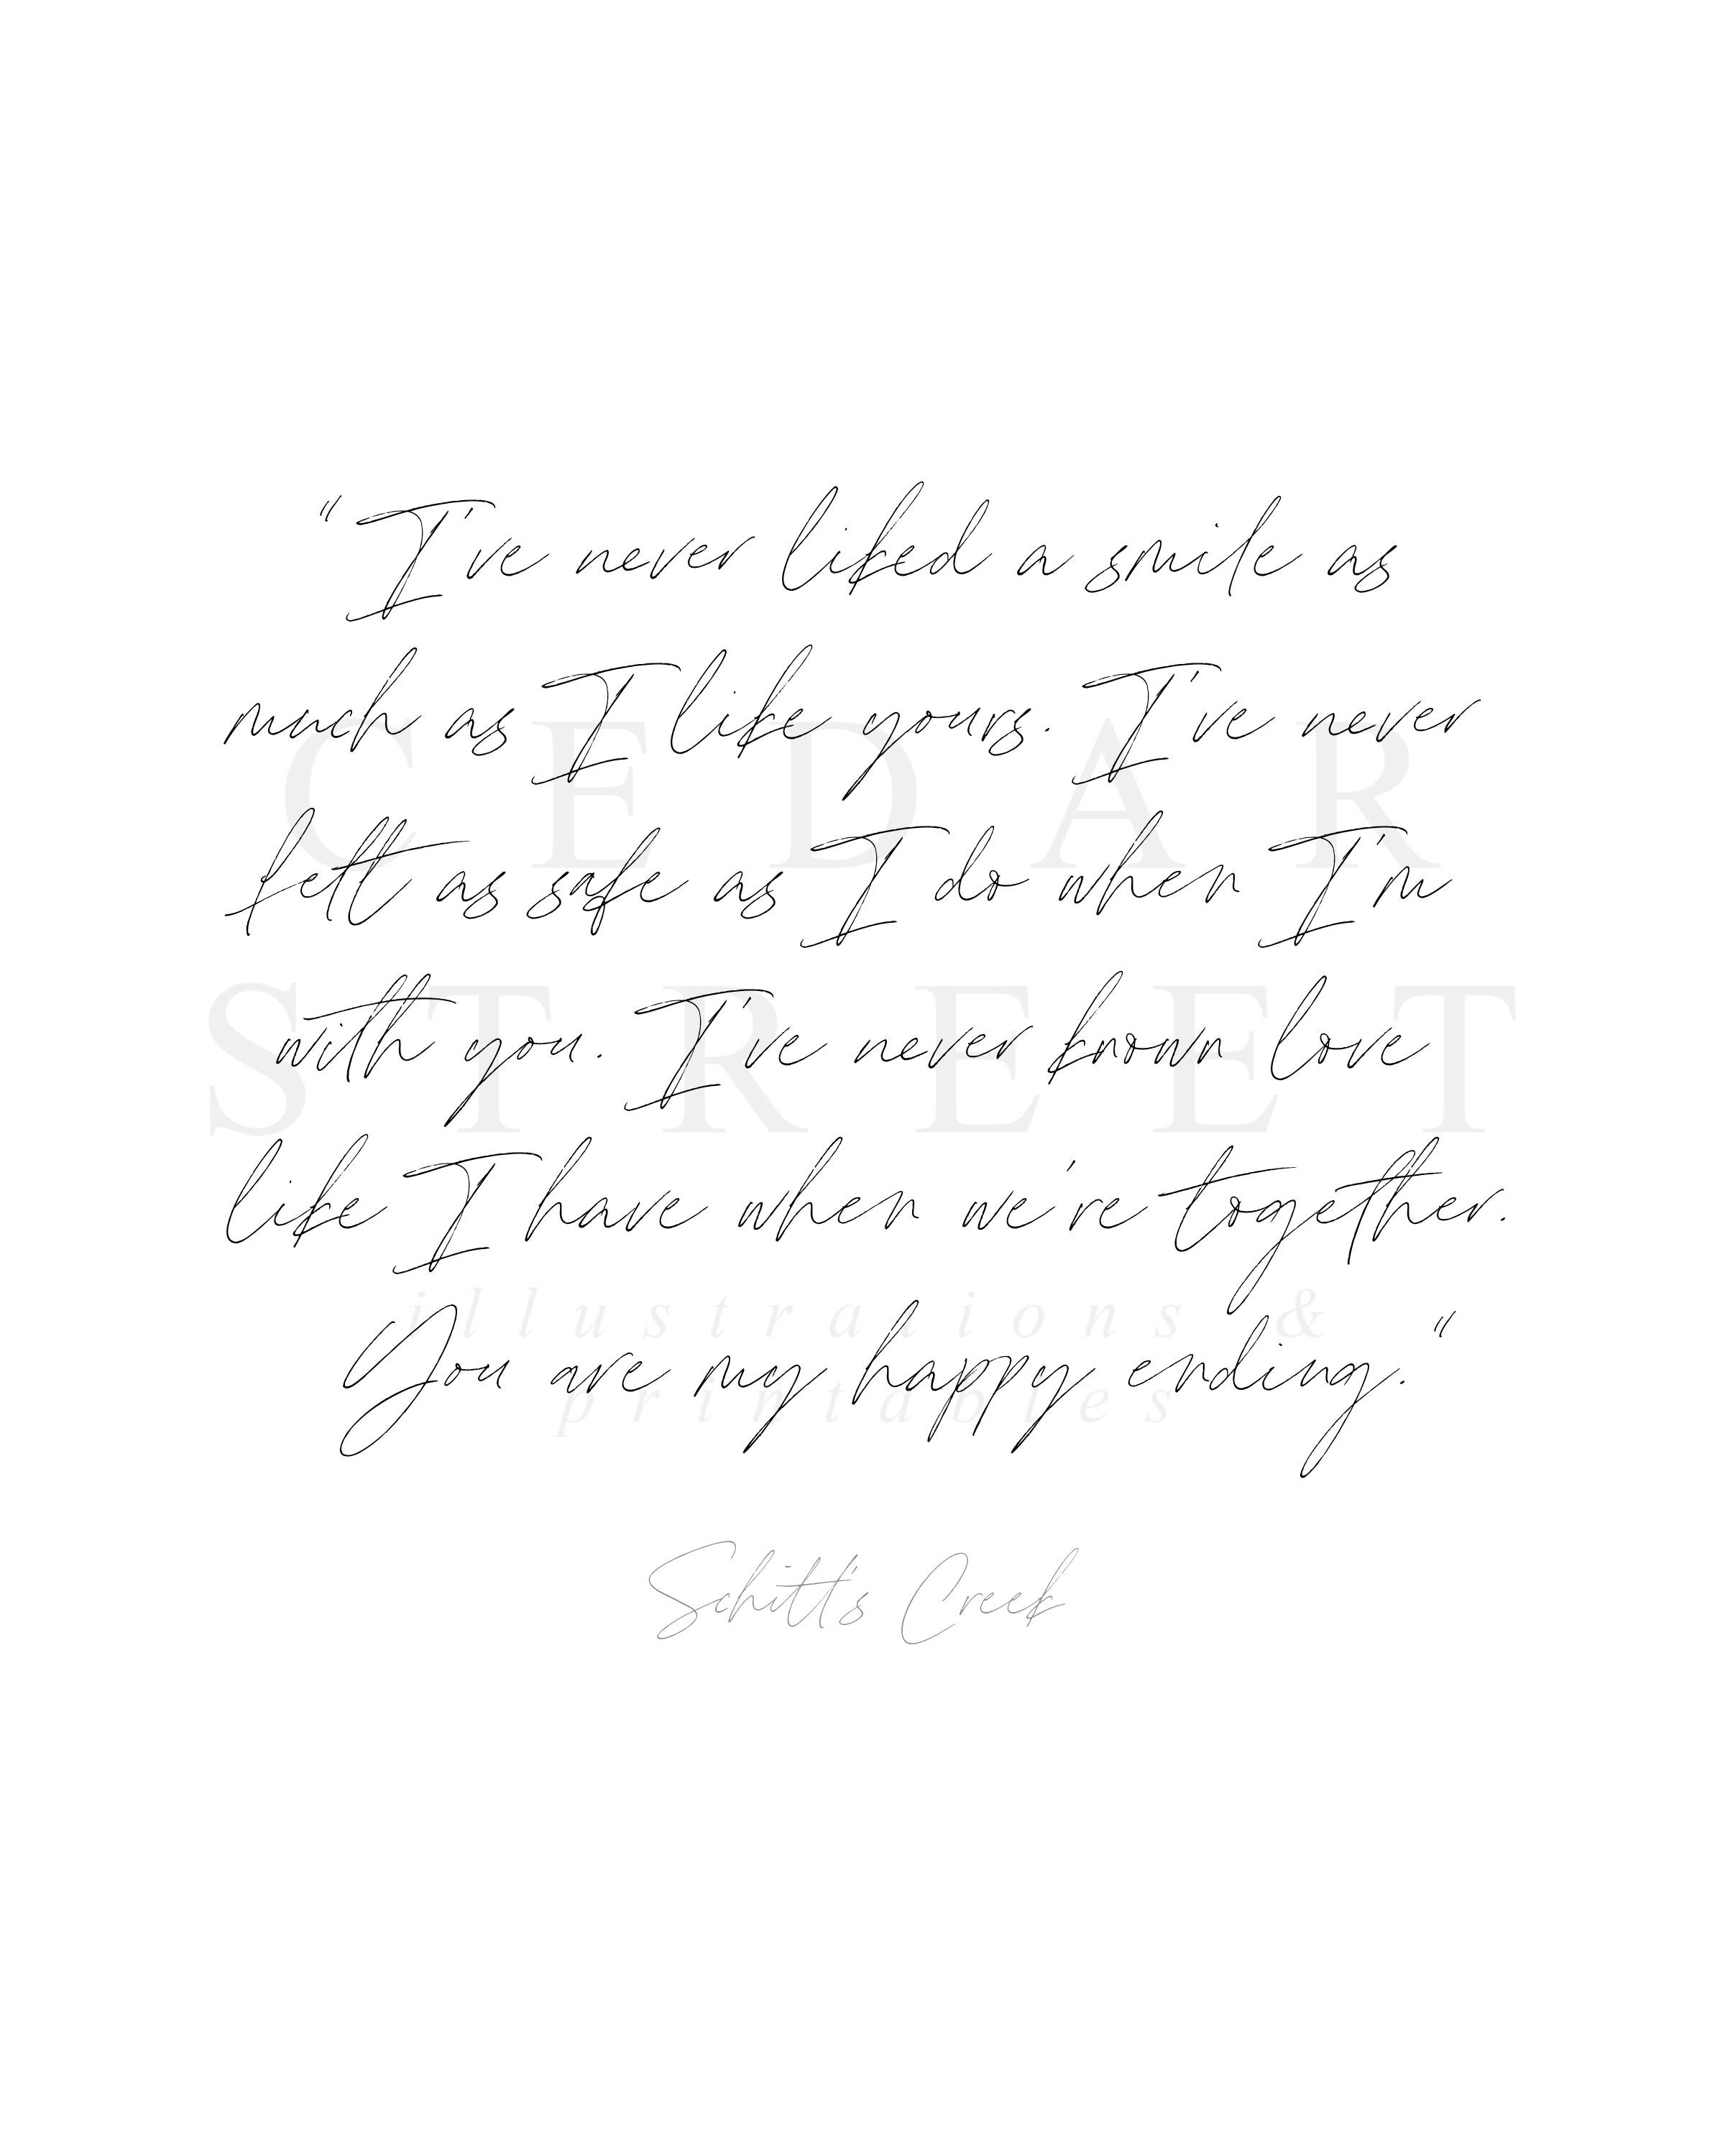 "I've never liked a smile as
much as I like yours. I've never
CEDAR
felt as safe as I do when I'm
STREET
with you. I've never known love
like I have when we're together.
illustrations &
You are my happy ending."
printables
Schitt's Creek